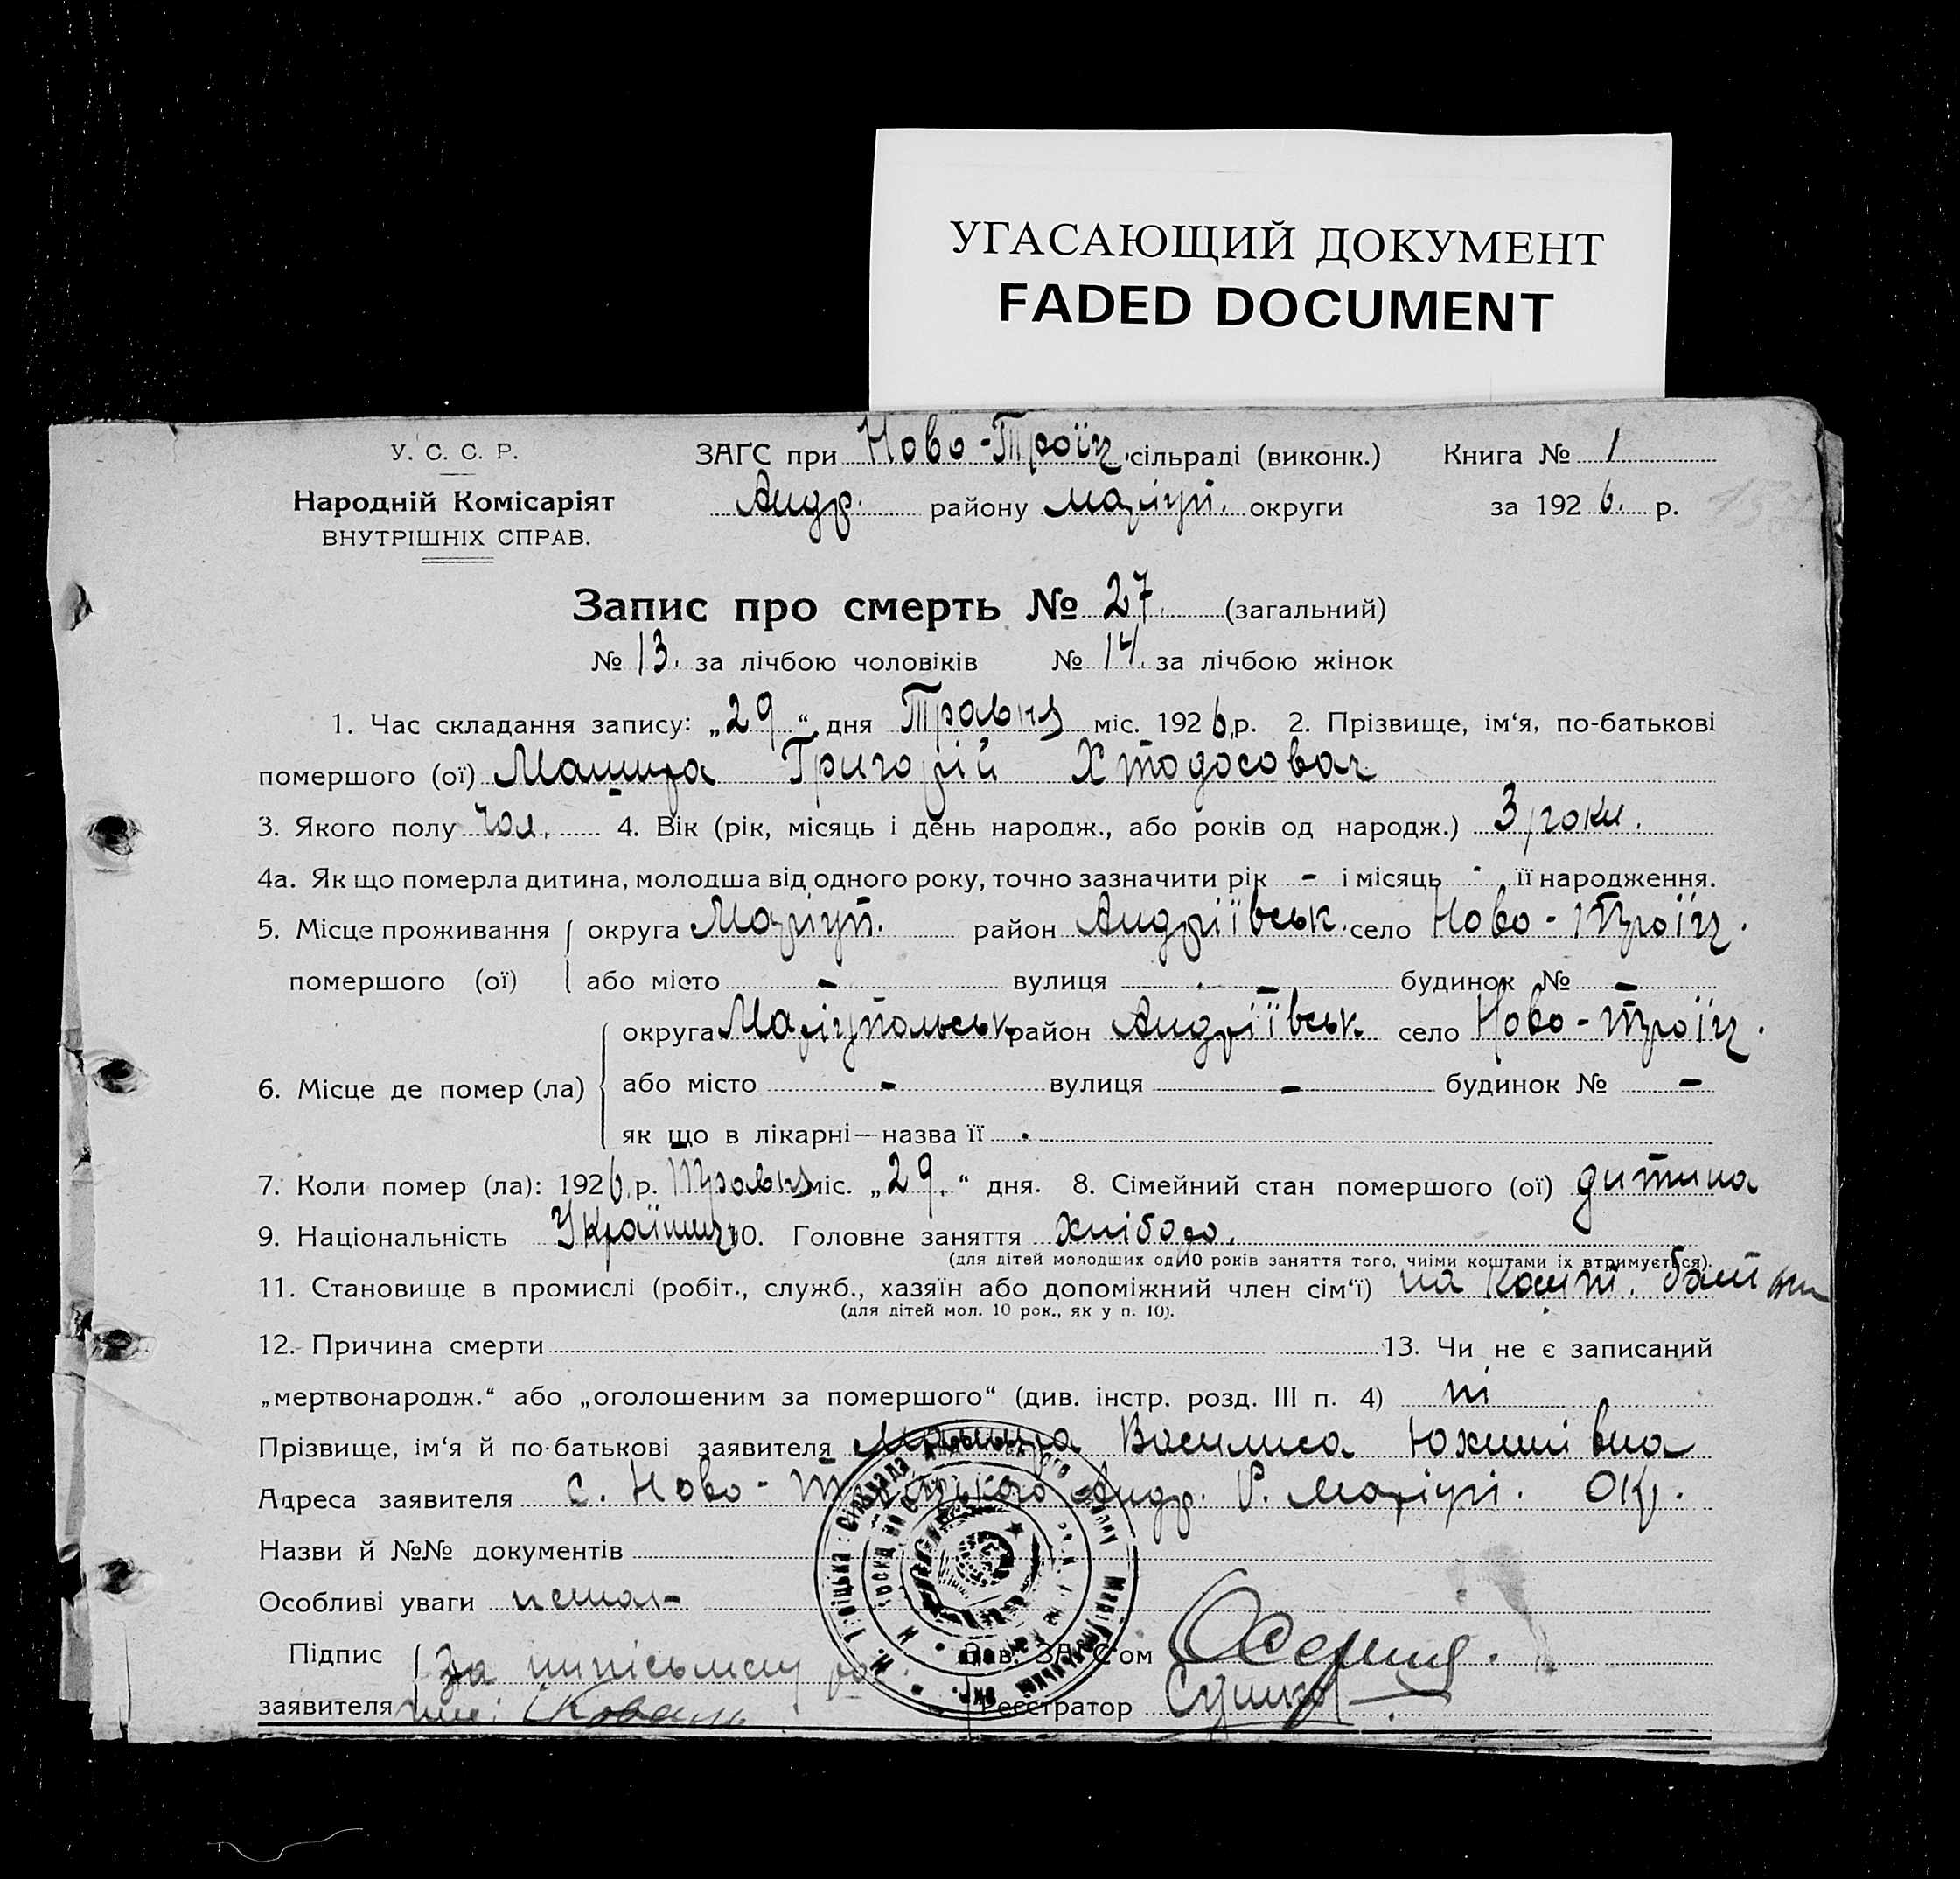 УГАСАЮЩИЙ ДОКУМЕНТ
FADED DOCUMENT
У. С. С. Р.
Народній Комісаріят
ВНУТРІШНІХ СПРАВ.
ЗАГС при Ново-Троїц. сільраді (виконк.) Книга № 1
Андр. району Маріуп. округи за 1926. р.
Запис про смерть № 27. (загальний)
№ 13. за лічбою чоловіків № 14. за лічбою жінок
1. Час складання запису: „29“ дня Травня міс. 1926 р. 2. Прізвище, ім‘я, по-батькові
помершого (ої) Григорій
3. Якого полу чол. 4. Вік (рік, місяць і день народж., або років од народж.) 3 роки.
4а. Як що померла дитина, молодша від одного року, точно зазначити рік - і місяць - її народження.
5. Місце проживання округа Маріуп. район Андріївськ. село Ново-Троїц.
помершого (ої) або місто - вулиця - будинок № -
округа Маріупольськ район Андріївськ село Ново-Троїц.
6. Місце де помер (ла) або місто - вулиця - будинок № -
як що в лікарні—назва її
7. Коли помер (ла): 1926 р. Травня міс. „29.“ дня. 8. Сімейний стан помершого (ої) дитина
9. Національність Українець 10. Головне заняття хлібороб.
(для дітей молодших од 10 років заняття того, чиїми коштами їх втримується).
11. Становище в промислі (робіт., служб., хазяїн або допоміжний член сім‘ї) на кошт. батьки
(для дітей мол. 10 рок., як у п. 10).
12. Причина смерти 13. Чи не є записаний
„мертвонародж.“ або „оголошеним за помершого“ (див. інстр. розд. III п. 4) ні
Прізвище, ім‘я й по-батькові заявителя Василиса Юхимівна
Адреса заявителя с. Ново-Троїцького Андр. Р. Маріуп. Окр.
Назви й №№ документів
Особливі уваги немає
Підпис За Зав. ЗАГС‘ом
заявителя Реєстратор